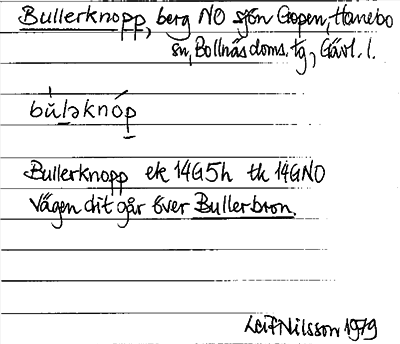 Bullerknopp, berg NO sjön Gopen, Hanebo
sn, Bollnäs doms. tg, Gävl. l.
bùləknóp
Bullerknopp ek 14G5h tk 14GNO
Vägen dit går över Bullerbron.
Leif Nilsson 1979